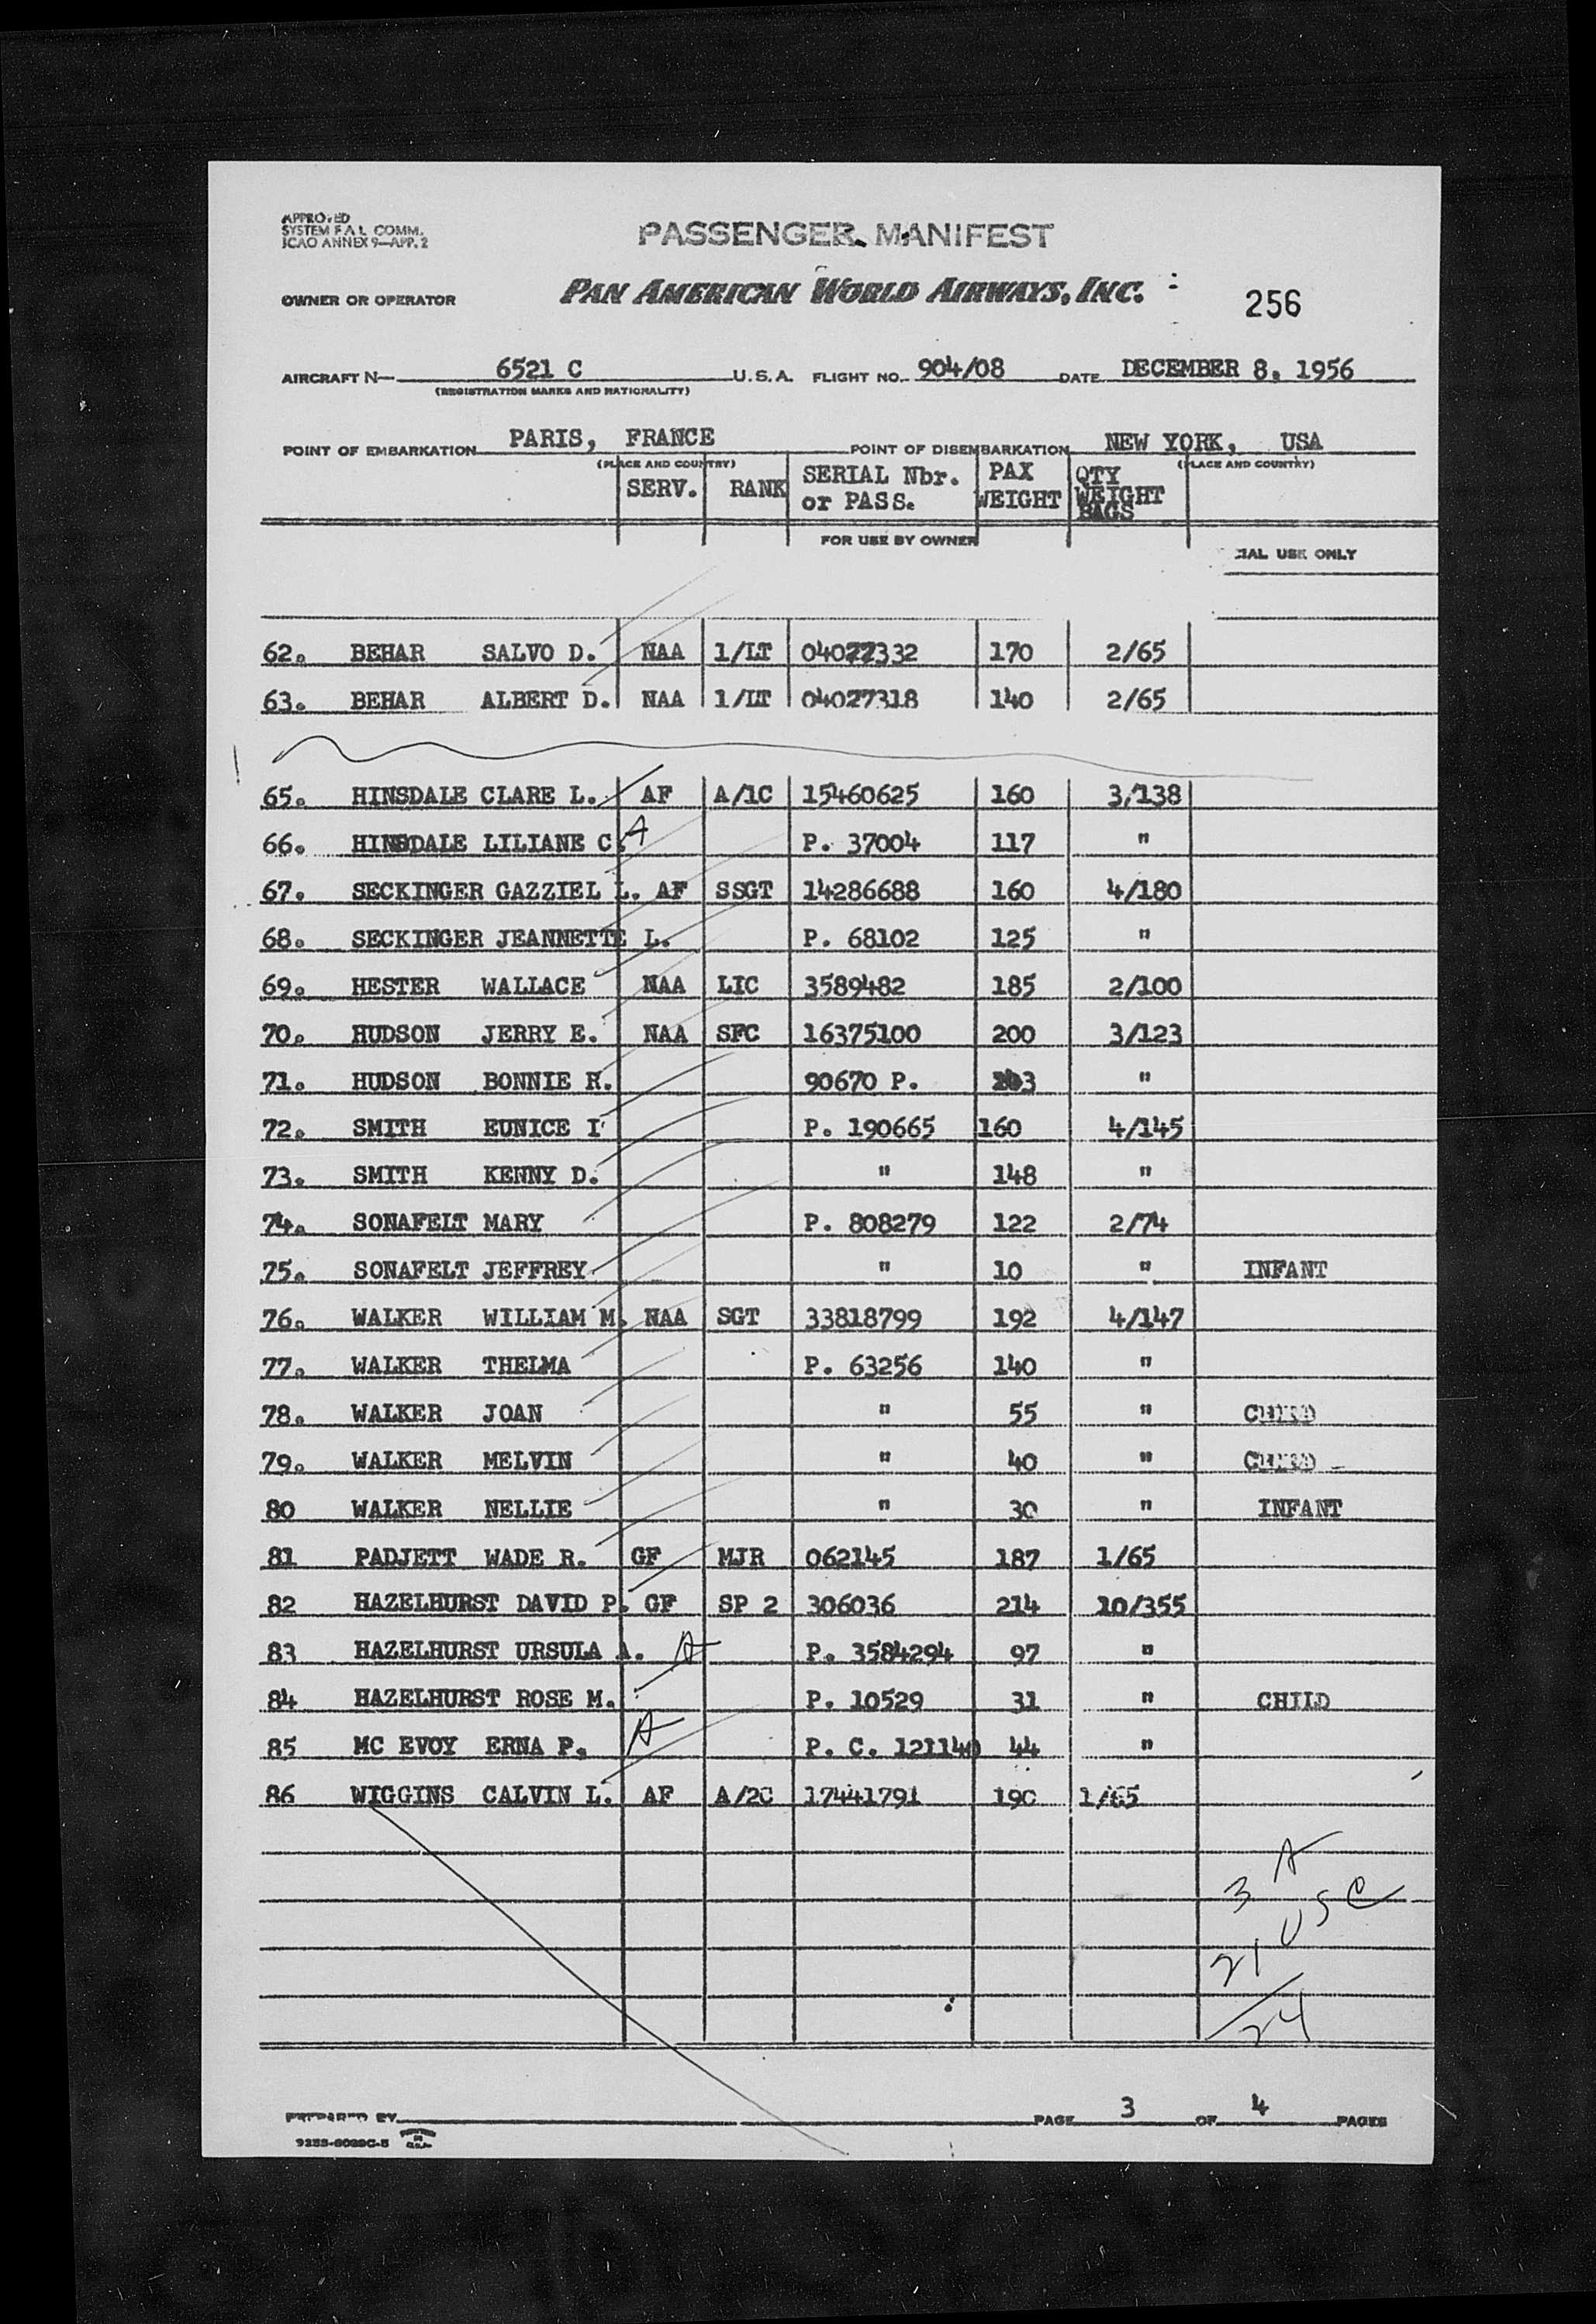 APPROVED
SYSTEM F A L COMM.
ICAO ANNEX 9—APP. 2
PASSENGER MANIFEST
OWNER OR OPERATOR PAN AMERICAN WORLD AIRWAYS, INC. 256
AIRCRAFT N— 6521 C U.S.A. FLIGHT NO. 904/08 DATE DECEMBER 8, 1956
(REGISTRATION MARKS AND NATIONALITY)
POINT OF EMBARKATION PARIS, FRANCE POINT OF DISEMBARKATION NEW YORK, USA
(PLACE AND COUNTRY) (PLACE AND COUNTRY)
SERV. RANK SERIAL Nbr. or PASS. PAX WEIGHT QTY WEIGHT BAGS
FOR USE BY OWNER
CIAL USE ONLY
62. BEHAR SALVO D. NAA 1/LT 04022332 170 2/65
63. BEHAR ALBERT D. NAA 1/LT 04027318 140 2/65
65. HINSDALE CLARE L. AF A/1C 15460625 160 3/138
66. HINSDALE LILIANE C. A P. 37004 117 "
67. SECKINGER GAZZIEL L. AF SSGT 14286688 160 4/180
68. SECKINGER JEANNETTE L. P. 68102 125 "
69. HESTER WALLACE NAA LIC 3589482 185 2/100
70. HUDSON JERRY E. NAA SFC 16375100 200 3/123
71. HUDSON BONNIE R. 90670 P. "
72. SMITH EUNICE I P. 190665 160 4/145
73. SMITH KENNY D. " 148 "
74. SONAFELT MARY P. 808279 122 2/74
75. SONAFELT JEFFREY " 10 " INFANT
76. WALKER WILLIAM M. NAA SGT 33818799 192 4/147
77. WALKER THELMA P. 63256 140 "
78. WALKER JOAN " 55 "
79. WALKER MELVIN " 40 "
80 WALKER NELLIE " 30 " INFANT
81 PADJETT WADE R. GF MJR 062145 187 1/65
82 HAZELHURST DAVID P. GF SP 2 306036 214 10/355
83 HAZELHURST URSULA A. A P. 3584294 97 "
84 HAZELHURST ROSE M. P. 10529 31 " CHILD
85 MC EVOY ERNA P. A P. C. 121140 44 "
86 WIGGINS CALVIN L. AF A/2C 17441791 190 1/65
3 A
21 USC
24
PREPARED BY PAGE 3 OF 4 PAGES